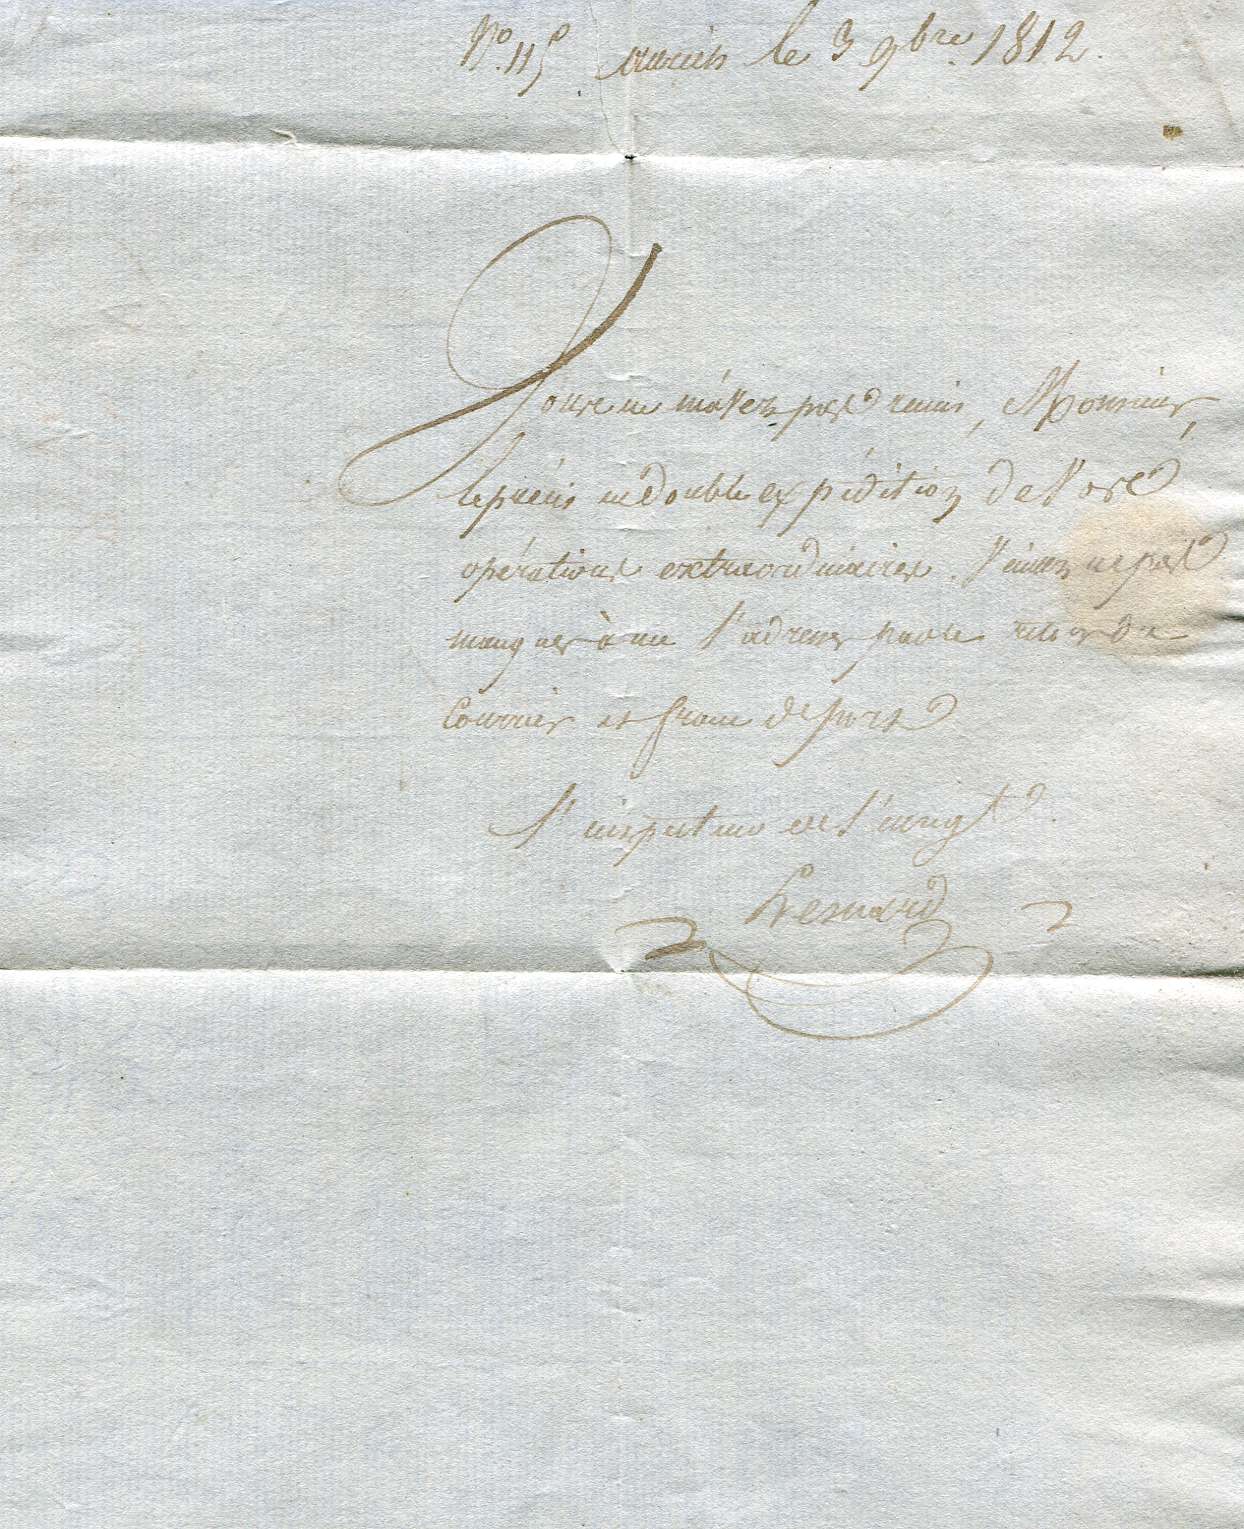 N.º 115. le 3 9bre. 1812.
Vous ne m'avez pas remis, Monsieur,
le précis en double expédition de Vos
opérations extraordinaires. Veuillez ne pas
manquer à me l'adresser par le retour du
Courrier et franc de port
l'inspecteur de l'enregt.